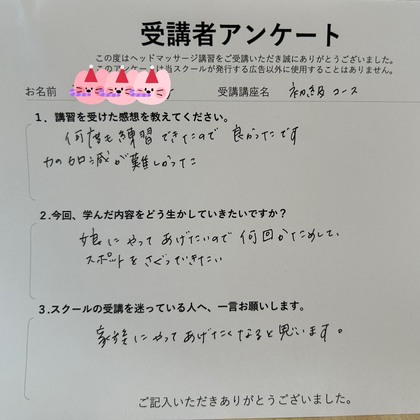 受講者アンケート
この度はヘッドマッサージ講習をご受講いただき誠にありがとうございました。
このアンケートは当スクールが発行する広告以外に使用することはありません。
お名前 受講講座名 初級コース
1．講習を受けた感想を教えてください。
何度も練習できたので 良かったです
力の加減が難しかった
2.今回、学んだ内容をどう生かしていきたいですか？
娘にやってあげたいので 何回かためして
スポットをさぐっていきたい
3.スクールの受講を迷っている人へ、一言お願いします。
家族にやってあげたくなると思います。
ご記入いただきありがとうございました。